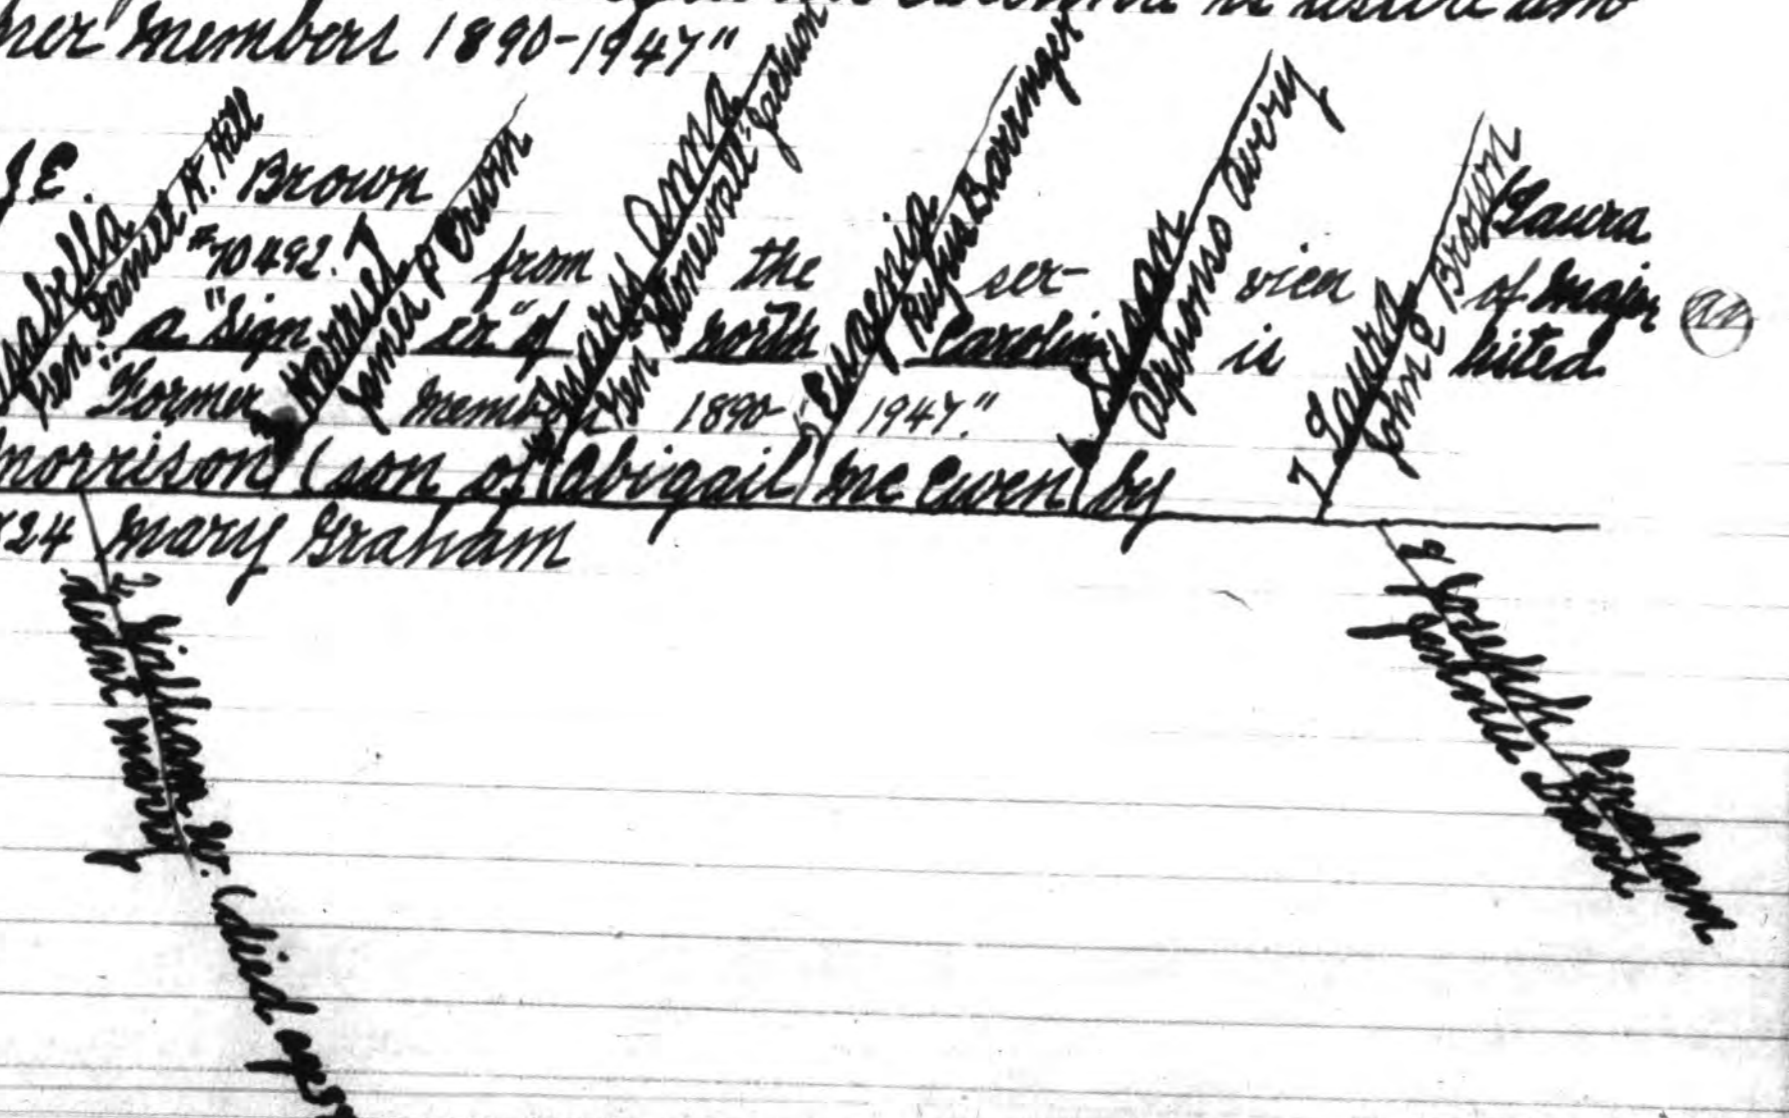 her members 1890-1947"
J.E. Brown (Laura
#70492. from the ser- vice of Major
a "Sign er" of North Carolina is listed
"Former members 1890- 1947."
Isabella
Gen. Daniel H. Hill
Harriet
James P Erwin
Mary Anna
Gen "Stonewall" Jackson
5 Eugenia
Rufus Barringer
6 Susan
Alphonso Avery
7 Laura
John E Brown
Morrison (son of Abigail Mc Ewen) by
24 Mary Graham
2 William W. (died
didn't marry
3 Joseph Graham
Jennie Davis